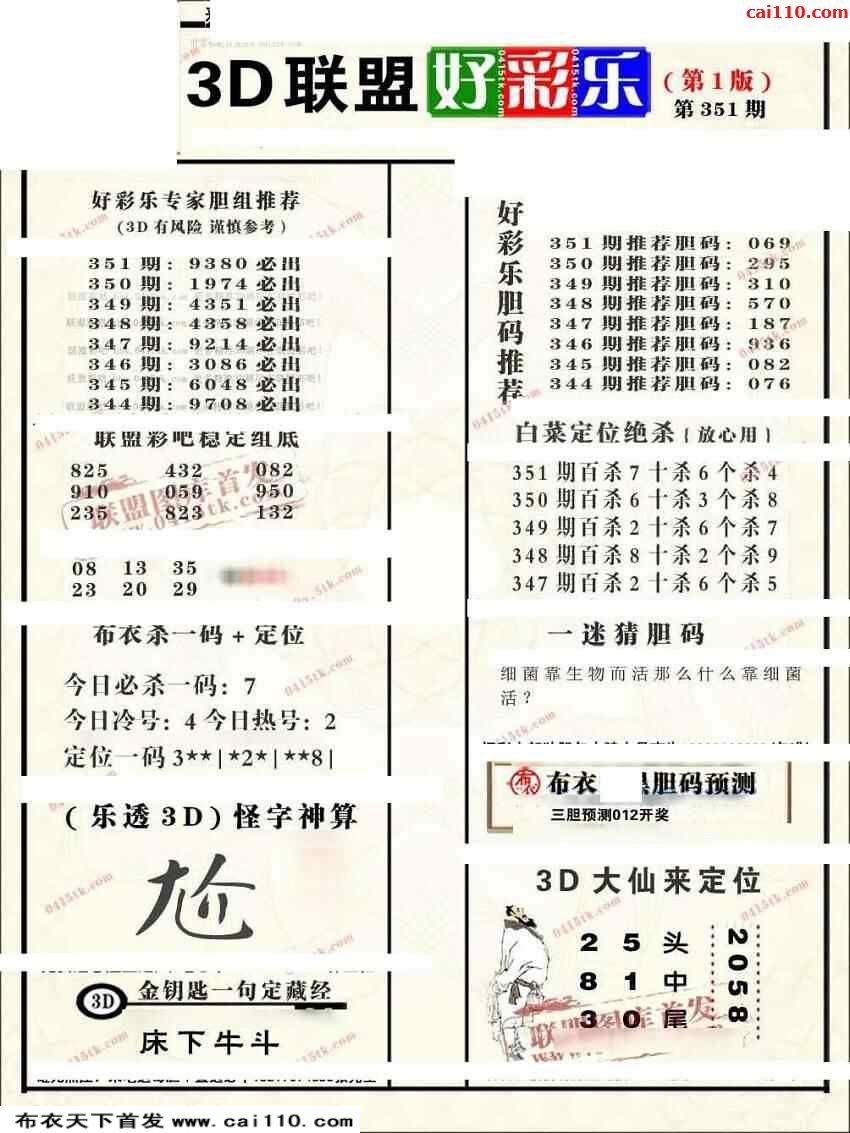 cai110.com
3D联盟好彩乐
(第1版)
第351期
好彩乐专家胆组推荐
(3D有风险 谨慎参考)
351期: 9380必出
350期: 1974必出
349期: 4351必出
348期: 4358必出
347期: 9214必出
346期: 3086必出
345期: 6048必出
344期: 9708必出
联盟彩吧稳定组底
825 432 082
910 059 950
235 823 132
08 13 35
23 20 29
布衣杀一码+定位
今日必杀一码: 7
今日冷号: 4 今日热号: 2
定位一码 3**|*2*|**8|
(乐透3D)怪字神算
尬
3D 金钥匙一句定藏经
床下牛斗
好彩乐胆码推荐
351期推荐胆码: 069
350期推荐胆码: 295
349期推荐胆码: 310
348期推荐胆码: 570
347期推荐胆码: 187
346期推荐胆码: 936
345期推荐胆码: 082
344期推荐胆码: 076
白菜定位绝杀{放心用}
351期百杀7十杀6个杀4
350期百杀6十杀3个杀8
349期百杀2十杀6个杀7
348期百杀8十杀2个杀9
347期百杀2十杀6个杀5
一迷猜胆码
细菌靠生物而活那么什么靠细菌
活?
布衣 胆码预测
三胆预测012开奖
3D大仙来定位
2 5 头
8 1 中
3 0 尾
2058
联盟图库首发
www.0415tk.com
0415tk.com
布衣天下首发 www.cai110.com